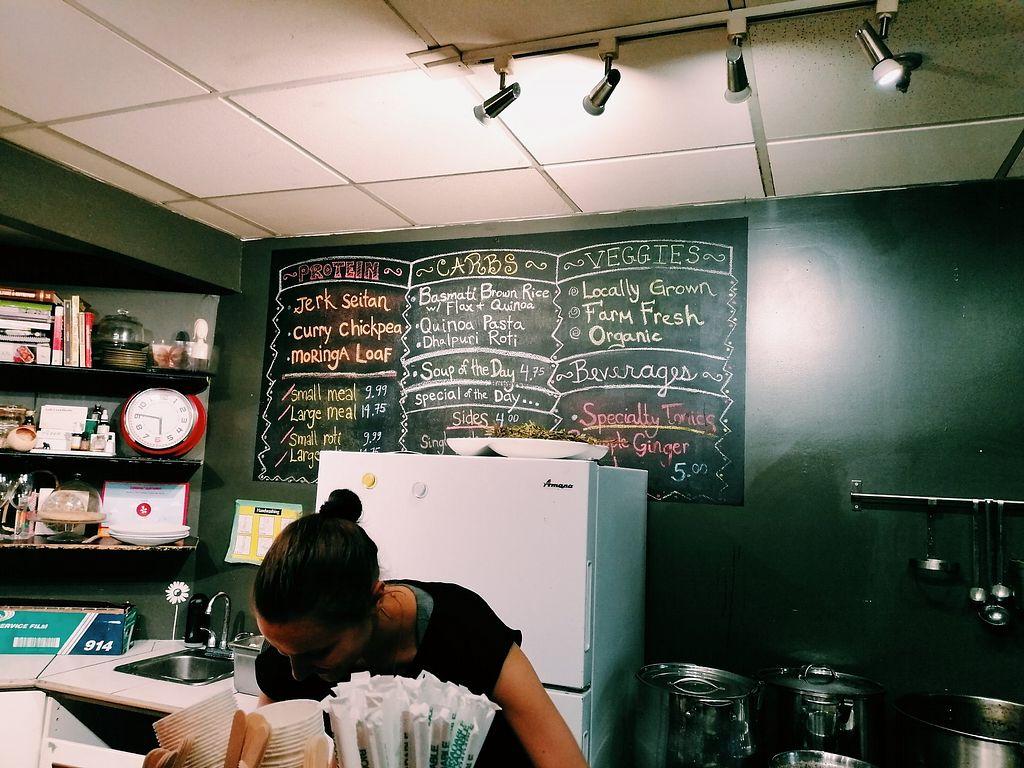 PROTEIN
Jerk Seitan
Curry Chickpea
MORINGA LOAF
Small meal 9.99
Large meal 14.75
Small roti 9.99
Large
CARBS
Basmati Brown Rice
w/ Flax + Quinoa
Quinoa Pasta
Dhalpuri Roti
Soup of the Day 4.75
special of the Day...
Sides 4.00
VEGGIES
Locally Grown
Farm Fresh
Organic
Beverages
Specialty Tonics
Ginger
5.00
Amana
Handwashing
SERVICE FILM
914